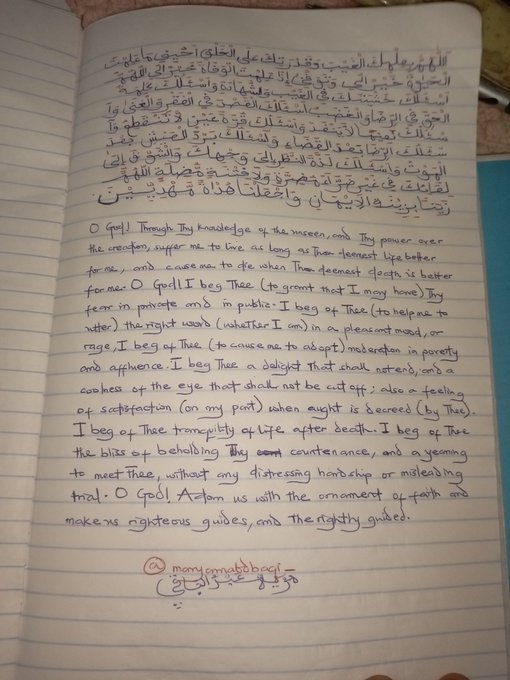 اَللّٰهُمَّ بِعِلْمِكَ الْغَيْبَ وَقُدْرَتِكَ عَلَى الْخَلْقِ اَحْيِنِيْ مَا عَلِمْتَ
الْحَيٰوةَ خَيْرًا لِّيْ وَتَوَفَّنِيْ اِذَا عَلِمْتَ الْوَفَاةَ خَيْرًا لِّيْ اَللّٰهُمَّ
اَسْئَلُكَ خَشْيَتَكَ فِي الْغَيْبِ وَالشَّهَادَةِ وَاَسْئَلُكَ كَلِمَةَ
الْحَقِّ فِي الرِّضَا وَالْغَضَبِ اَسْئَلُكَ الْقَصْدَ فِي الْفَقْرِ وَالْغِنٰى وَاَ
سْئَلُكَ نَعِيْمًا لَّا يَنْفَدُ وَاَسْئَلُكَ قُرَّةَ عَيْنٍ لَّا تَنْقَطِعُ وَاَ
سْئَلُكَ الرِّضَا بَعْدَ الْقَضَاءِ وَاَسْئَلُكَ بَرْدَ الْعَيْشِ بَعْدَ
الْمَوْتِ وَاَسْئَلُكَ لَذَّةَ النَّظَرِ اِلٰى وَجْهِكَ وَالشَّوْقَ اِلٰى
لِقَائِكَ فِيْ غَيْرِ ضَرَّاءَ مُضِرَّةٍ وَّلَا فِتْنَةٍ مُّضِلَّةٍ اَللّٰهُمَّ
زَيِّنَّا بِزِيْنَةِ الْاِيْمَانِ وَاجْعَلْنَا هُدَاةً مُّهْتَدِيْنَ
O God! Through Thy knowledge of the unseen, and Thy power over
the creation, suffer me to live as long as Thou deemest life better
for me, and cause me to die when Thou deemest death is better
for me. O God! I beg Thee (to grant that I may have) Thy
fear in private and in public. I beg of Thee (to help me to
utter) the right word (whether I am) in a pleasant mood, or
rage, I beg of Thee (to cause me to adopt) moderation in poverty
and affluence. I beg Thee a delight that shall not end, and a
coolness of the eye that shall not be cut off; also a feeling
of satisfaction (on my part) when aught is decreed (by Thee).
I beg of Thee tranquility of life after death. I beg of Thee
the bliss of beholding Thy countenance, and a yearning
to meet Thee, without any distressing hardship or misleading
trial. O God! Adorn us with the ornament of faith and
make us righteous guides, and the rightly guided.
@maryamabdbaqi_
مريم عبد الباقي